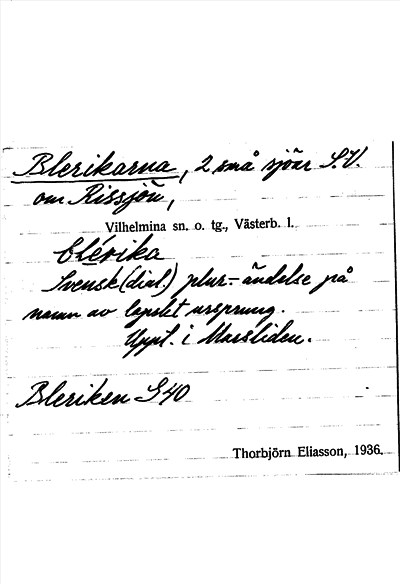 Blerikarna, 2 små sjöar S.V.
om Rissjön,
Vilhelmina sn. o. tg., Västerb. l.
blérika
Svensk (dial.) plur.-ändelse på
namn av lapskt ursprung.
Uppt. i Marsliden.
Bleriken S 40
Thorbjörn Eliasson, 1936.